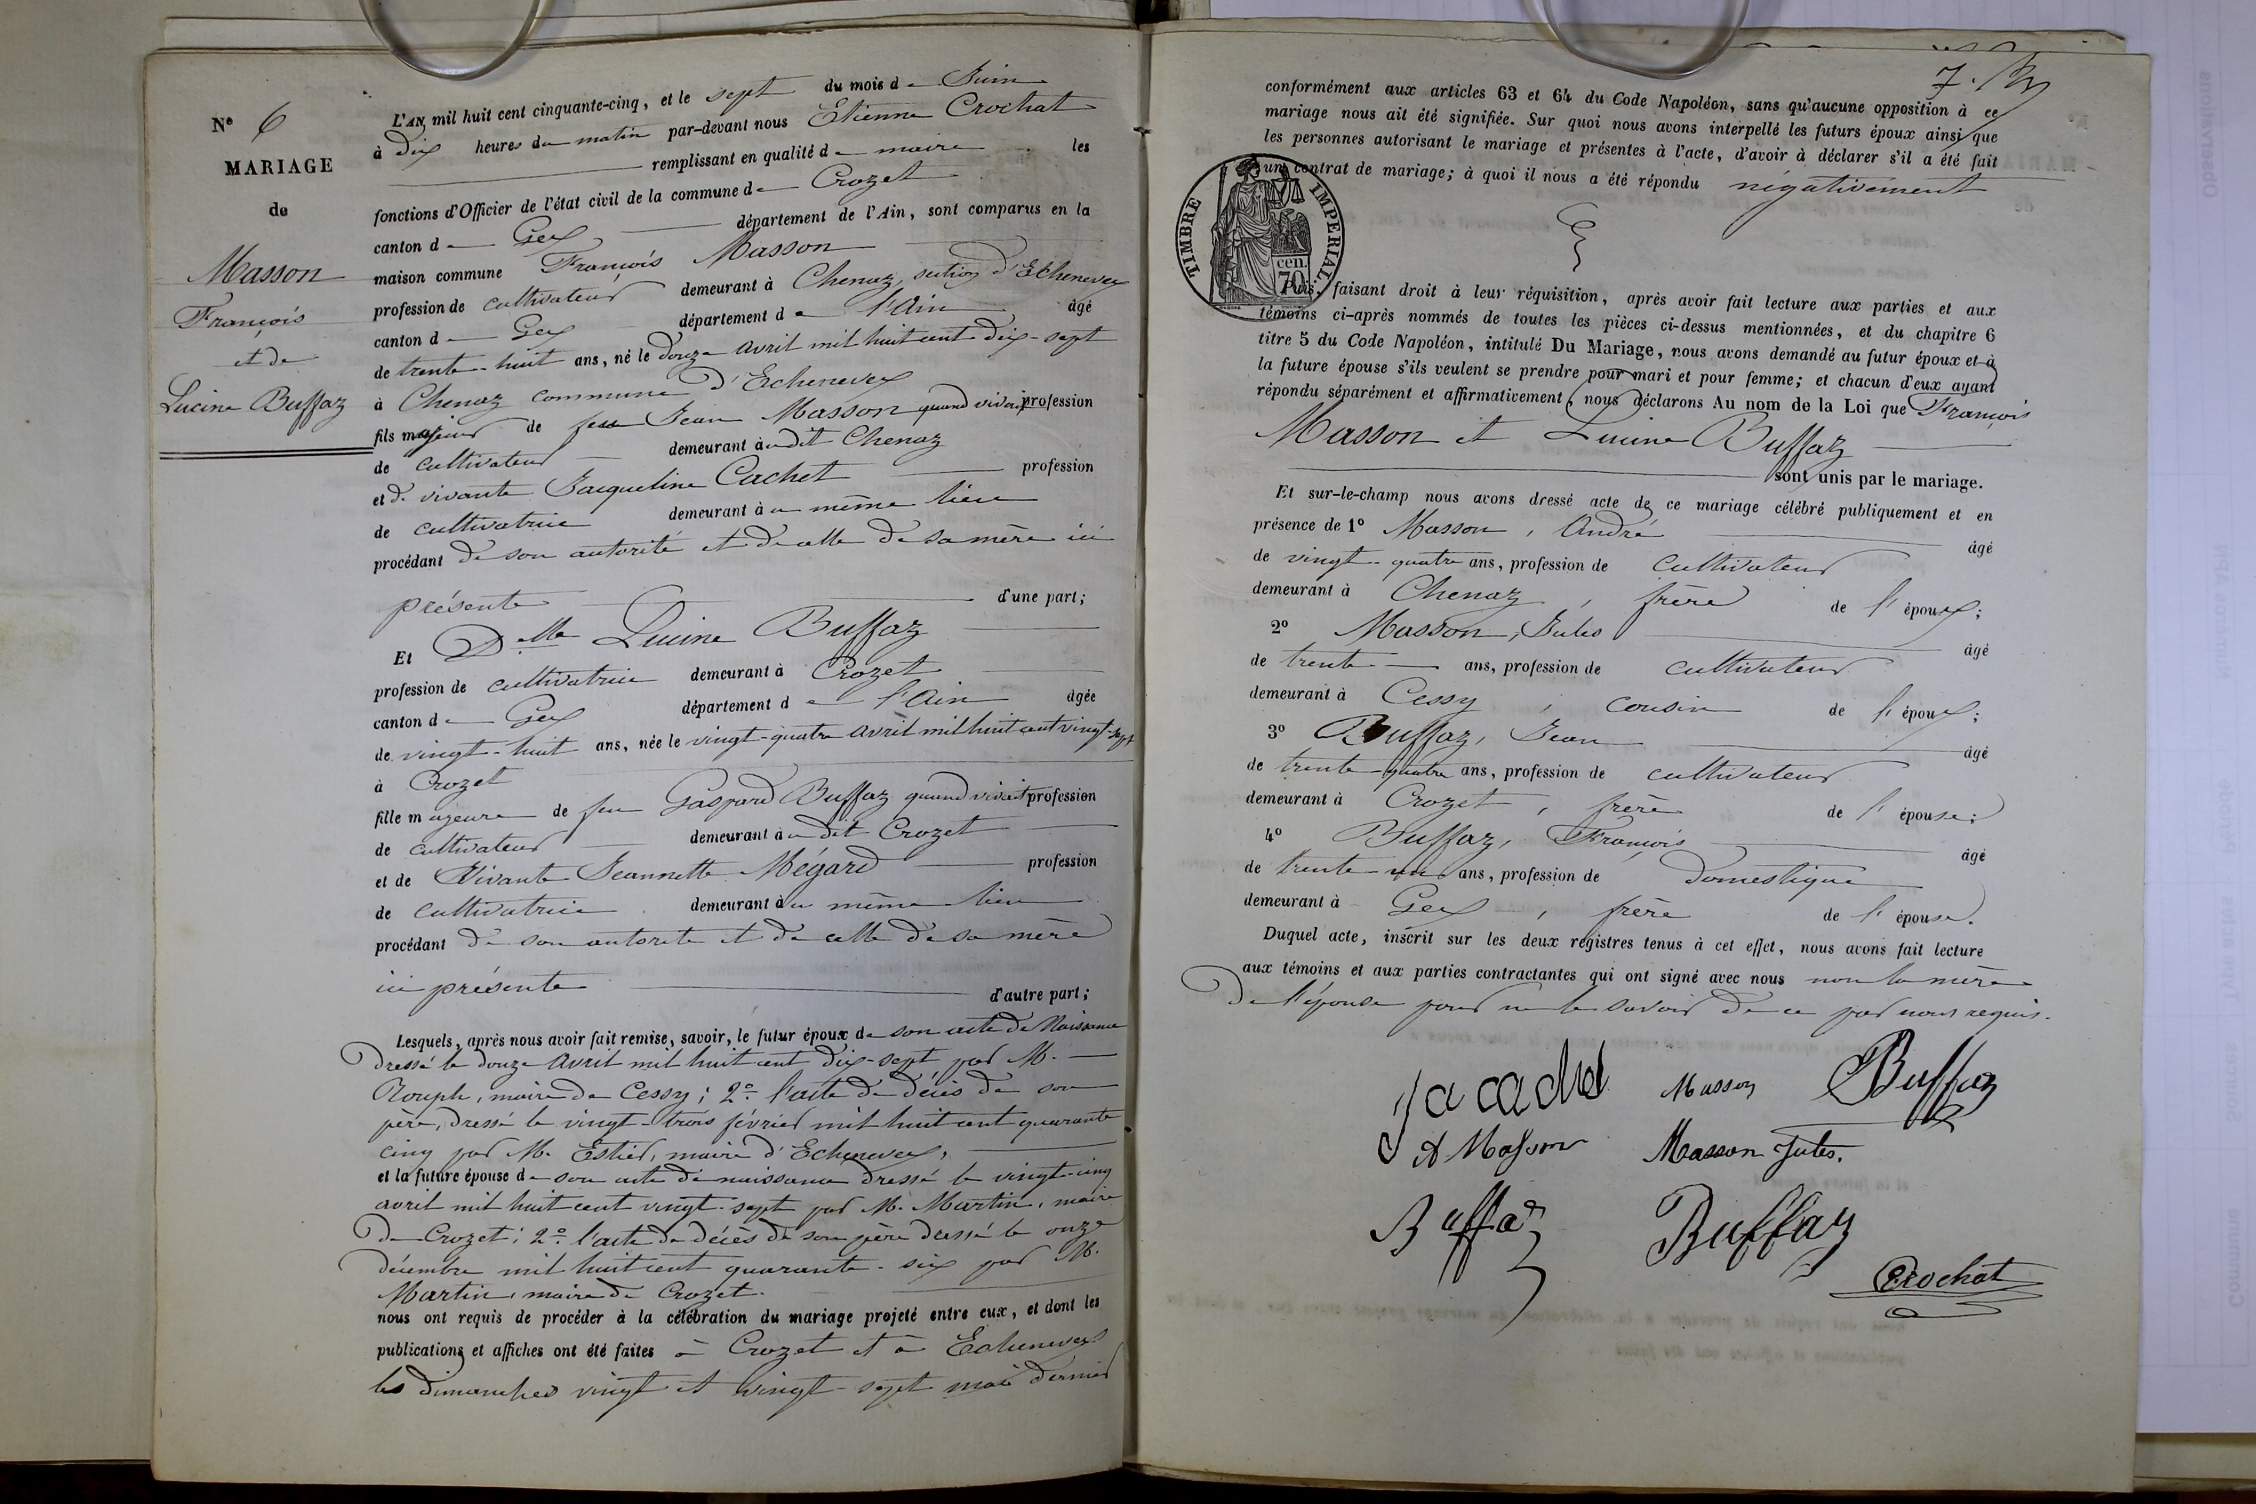 N° 6
MARIAGE
de
Masson
François
et de
Lucine Buffaz
L'AN mil huit cent cinquante-cinq, et le sept du mois de Juin
à dix heures du matin par-devant nous Etienne Crochat
remplissant en qualité de maire les
fonctions d'Officier de l'état civil de la commune de Crozet
canton de Gex département de l'Ain, sont comparus en la
maison commune François Masson
profession de cultivateur demeurant à Chenaz, section d'Echenevex
canton de Gex département de l'Ain âgé
de trente-huit ans, né le douze avril mil huit cent dix-sept
à Chenaz commune d'Echenevex
fils majeur de feu Jean Masson quand vivait profession
de cultivateur demeurant audit Chenaz
et de vivante Jacqueline Cachet profession
de cultivatrice demeurant au même lieu
procédant de son autorité et de celle de sa mère ici
présente d'une part;
Et Delle Lucine Buffaz
profession de cultivatrice demeurant à Crozet
canton de Gex département de l'Ain âgée
de vingt-huit ans, née le vingt-quatre avril mil huit cent vingt-sept
à Crozet
fille majeure de feu Gaspard Buffaz quand vivait profession
de cultivateur demeurant audit Crozet
et de vivante Jeannette Mégard profession
de cultivatrice demeurant au même lieu
procédant de son autorité et de celle de sa mère
ici présente d'autre part;
Lesquels, après nous avoir fait remise, savoir, le futur époux de son acte de Naissance
dressé le douze avril mil huit cent dix-sept par M.
Rouph, maire de Cessy; 2° l'acte de décès de son
père, dressé le vingt-trois février mil huit cent quarante
cinq par M. Estier, maire d'Echenevex,
et la future épouse de son acte de naissance dressé le vingt-cinq
avril mil huit cent vingt-sept par M. Martin, maire
de Crozet; 2° l'acte de décès de son père dressé le onze
décembre mil huit cent quarante-six par M.
Martin, maire de Crozet.
nous ont requis de procéder à la célébration du mariage projeté entre eux, et dont les
publications et affiches ont été faites à Crozet et à Echenevex
les dimanches vingt et vingt-sept mai dernier
7.
conformément aux articles 63 et 64 du Code Napoléon, sans qu'aucune opposition à ce
mariage nous ait été signifiée. Sur quoi nous avons interpellé les futurs époux ainsi que
les personnes autorisant le mariage et présentes à l'acte, d'avoir à déclarer s'il a été fait
un contrat de mariage; à quoi il nous a été répondu négativement
TIMBRE IMPERIAL
70 cen.
Puis, faisant droit à leur réquisition, après avoir fait lecture aux parties et aux
témoins ci-après nommés de toutes les pièces ci-dessus mentionnées, et du chapitre 6
titre 5 du Code Napoléon, intitulé Du Mariage, nous avons demandé au futur époux et à
la future épouse s'ils veulent se prendre pour mari et pour femme; et chacun d'eux ayant
répondu séparément et affirmativement, nous déclarons Au nom de la Loi que François
Masson et Lucine Buffaz
sont unis par le mariage.
Et sur-le-champ nous avons dressé acte de ce mariage célébré publiquement et en
présence de 1° Masson, André âgé
de vingt-quatre ans, profession de cultivateur
demeurant à Chenaz, frère de l'époux;
2° Masson, Jules âgé
de trente ans, profession de cultivateur
demeurant à Cessy, cousin de l'époux;
3° Buffaz, Jean âgé
de trente-quatre ans, profession de cultivateur
demeurant à Crozet, frère de l'épouse;
4° Buffaz, François âgé
de trente-un ans, profession de domestique
demeurant à Gex, frère de l'épouse.
Duquel acte, inscrit sur les deux registres tenus à cet effet, nous avons fait lecture
aux témoins et aux parties contractantes qui ont signé avec nous non la mère
de l'épouse pour ne le savoir de ce par nous requis.
Masson Buffaz
A Masson Masson Jules.
Buffaz Buffaz
Crochat